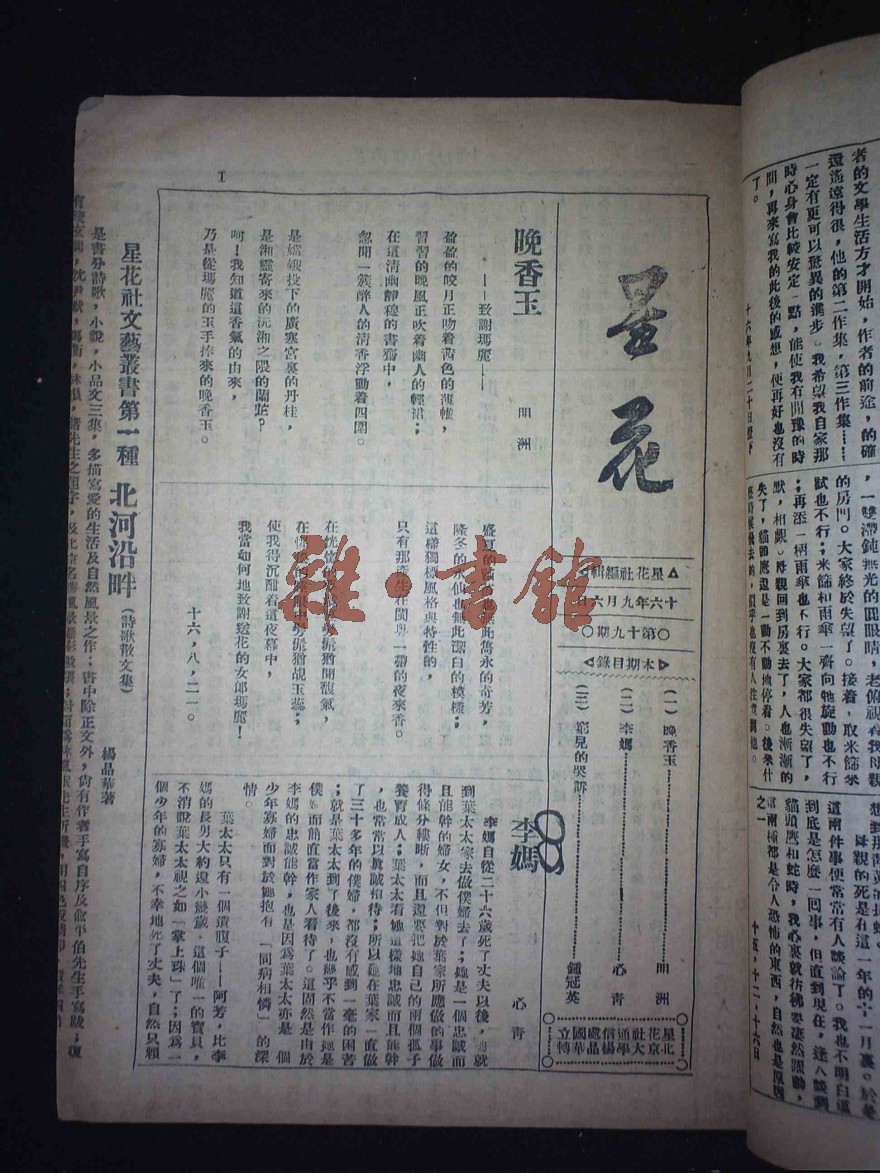 者的文學生活方才開始，作者的前途，的確
還遙遠得很，他的第二作集，第三作集……
一定有更可以驚異的進步。我希望我自家那
時心身會比較安定一點，能使我有閒豫的時
間，再來寫我的此後的感想，便再好也沒有
了。
十六年九月二十日燈下
，一雙滯鈍無光的圓眼睛，老俯視着我母親
的房門。大家終於失望了。接着，取米篩來
試也不行；米篩和雨傘一齊向牠旋動也不行
；再添一柄雨傘也不行。大家都很失望了，
默，相覷。母親回到房裏去了，人也漸漸的
失了，貓頭鷹還是一動不動地停着。後來什
母親的死是在這一年的十一月裏。於是
這兩件事便常常有人談論了。我也不明白這
到底是怎麼一回事，但直到現在，逢人談到
貓頭鷹和蛇時，我心裏就彷彿要凄然跟動，
當兩種都是令人恐怖的東西，自然也是原因
之一
十五，十二，十六日
星花
△星花社編輯▷
十六年九月六日
○第十九期○
◁本期目錄▷
（一）晚香玉………………朋洲
（二）李媽………………心青
（三）鄉見的哭訴………………鍾冠英
星花社通信處
北京大學楊晶華
國立
轉
晚香玉
——致謝瑪麗——
朋洲
盈盈的皎月正吻着茜色的薄帷，
習習的晚風正吹着幽人的輕裙；
在這清幽靜穆的書齋中，
忽聞一簇醉人的清香浮動着四圍。
是嫦娥投下的廣寒宮裏的丹桂，
是湘靈寄來的沅湘之隈的蘭茝？
呵！我知道這香氣的由來，
乃是從瑪麗的玉手捧來的晚香玉。
隆冬的水仙也無此潔白的模樣；
這樣獨標風格與特性的，
只有那產生在閩粵一帶的夜來香。
使我得沉酣着這夜幕中，
我當如何地致謝送花的女郎瑪麗！
十六，八，二一。
李媽
心青
李媽自從二十六歲死了丈夫以後，她就
到葉太太家去做僕婦去了；她是一個忠誠而
且能幹的婦女，不但對於葉家所應做的事做
得條分縷晰，而且還要把她自己的兩個孤子
養育成人；葉太太看她這樣地忠誠而且能幹
，也常常以眞誠相待；所以她在葉家一直做
了三十多年的僕婦，都沒有感到一毫的困苦
；就是葉太太到了後來，也幾乎不當作她是
僕婦而簡直當作家人看待了。這固然是由於
李媽的忠誠能幹，也是因爲葉太太亦是一個
少年寡婦而對於她抱有「同病相憐」的深
情。
葉太太只有一個遺腹子——阿芳，比李
媽的長男大約還小幾歲，這個唯一的寶貝，
不消說葉太太視之如「掌上珠」了；因爲一
個少年的寡婦，不幸地死了丈夫，自然只賴
星花社文藝叢書第一種 北河沿畔（詩歌散文集）
楊晶華著
是書分詩歌，小說，小品文三集，多描寫愛的生活及自然風景之作；書中除正文外，尚有作者手寫自序及俞平伯先生手寫跋；復
1
雜·書舘